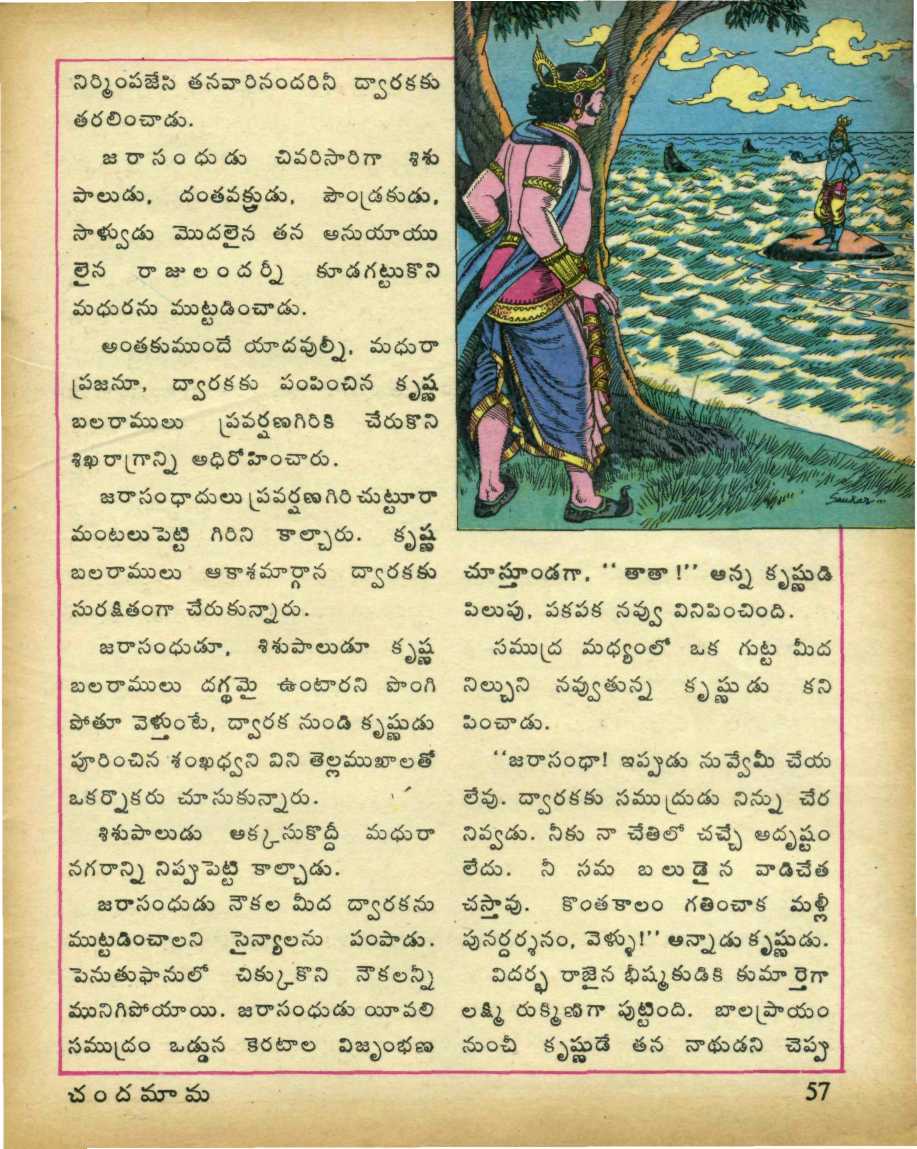 నిర్మింపజేసి తనవారినందరినీ ద్వారకకు
తరలించాడు.
జ రా సం ధు డు చివరిసారిగా శిశు
పాలుడు, దంతవక్త్రుడు, పౌండ్రకుడు,
సాళ్వుడు మొదలైన తన అనుయాయు
లైన రా జు లం ద ర్నీ కూడగట్టుకొని
మధురను ముట్టడించాడు.
అంతకుముందే యాదవుల్నీ, మధురా
ప్రజనూ, ద్వారకకు పంపించిన కృష్ణ
బలరాములు ప్రవర్షణగిరికి చేరుకొని
శిఖరాగ్రాన్ని అధిరోహించారు.
జరాసంధాదులు ప్రవర్షణగిరి చుట్టూరా
మంటలుపెట్టి గిరిని కాల్చారు. కృష్ణ
బలరాములు ఆకాశమార్గాన ద్వారకకు
సురక్షితంగా చేరుకున్నారు.
జరాసంధుడూ, శిశుపాలుడూ కృష్ణ
బలరాములు దగ్ధమై ఉంటారని పొంగి
పోతూ వెళ్తుంటే, ద్వారక నుండి కృష్ణుడు
పూరించిన శంఖధ్వని విని తెల్లముఖాలతో
ఒకర్నొకరు చూసుకున్నారు.
శిశుపాలుడు అక్కసుకొద్దీ మధురా
నగరాన్ని నిప్పుపెట్టి కాల్చాడు.
జరాసంధుడు నౌకల మీద ద్వారకను
ముట్టడించాలని సైన్యాలను పంపాడు.
పెనుతుఫానులో చిక్కుకొని నౌకలన్నీ
మునిగిపోయాయి. జరాసంధుడు యీవలి
సముద్రం ఒడ్డున కెరటాల విజృంభణ
Sankar
చూస్తూండగా, ‘‘ తాతా !’’ అన్న కృష్ణుడి
పిలుపు, పకపక నవ్వు వినిపించింది.
సముద్ర మధ్యంలో ఒక గుట్ట మీద
నిల్చుని నవ్వుతున్న కృ ష్ణు డు కని
పించాడు.
‘‘జరాసంధా! ఇప్పుడు నువ్వేమీ చేయ
లేవు. ద్వారకకు సముద్రుడు నిన్ను చేర
నివ్వడు. నీకు నా చేతిలో చచ్చే అదృష్టం
లేదు. నీ సమ బ లు డై న వాడిచేత
చస్తావు. కొంతకాలం గతించాక మళ్లీ
పునర్దర్శనం, వెళ్ళు!’’ అన్నాడు కృష్ణుడు.
విదర్భ రాజైన భీష్మకుడికి కుమార్తెగా
లక్ష్మి రుక్మిణిగా పుట్టింది. బాలప్రాయం
నుంచీ కృష్ణుడే తన నాథుడని చెప్పు
చం ద మా మ
57